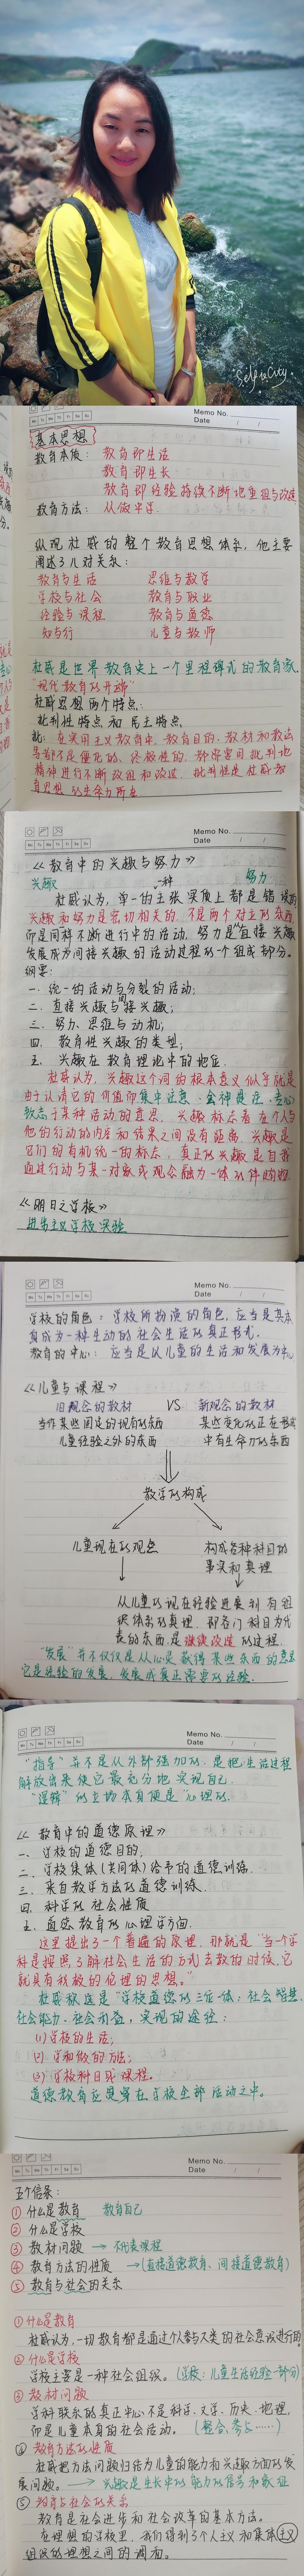 Self in City
Memo No.
Date / /
Mo Tu We Th Fr Sa Su
基本思想
教育本质: 教育即生活
教育即生长
教育即经验持续不断地重组与改造
教育方法: 从做中学.
纵观杜威的整个教育思想体系,他主要
阐述了几对关系:
教育与生活 思维与教学
学校与社会 教育与职业
经验与课程 教育与道德
知与行 儿童与教师
杜威是世界教育史上一个里程碑式的教育家.
"现代教育的开端"
杜威思想两个特点:
批判性特点和民主特点.
批: 在实用主义教育中,教育目的、教材和教法
等都不是僵化的、终极性的,都需要用批判地
精神进行不断改组和改造,批判性是杜威教
育思想的生命力所在
Memo No.
Date / /
Mo Tu We Th Fr Sa Su
《教育中的兴趣与努力》
兴趣 一种 努力
杜威认为,单一的主张实质上都是错误的
兴趣和努力是密切相关的,不是两个对立的东西
而是同样不断进行中的活动,努力是"直接兴趣
发展成为间接兴趣的活动过程的一个组成部分。
纲要:
一. 统一的活动与分裂的活动;
二. 直接兴趣与间接兴趣;
三. 努力、思维与动机;
四. 教育性兴趣的类型;
五. 兴趣在教育理论中的地位.
杜威认为,兴趣这个词的根本意义似乎就是
由于认清它的价值而集中注意、全神贯注、专心
致志于某种活动的意思,兴趣标志着在个人与
他的行动的内容和结果之间没有距离,兴趣是
它们的有机统一的标志,真正的兴趣是自我
通过行动与某一对象或观念融为一体的伴随物.
《明日之学校》
进步主义学校实验
Memo No.
Date / /
Mo Tu We Th Fr Sa Su
学校的角色: 学校所扮演的角色,应当是其本
身成为一种生动的社会生活的真正形式.
教育的中心: 应当是以儿童的生活和发展为中心
《儿童与课程》
旧观念的教材 VS 新观念的教材
当作某些固定的现有的东西 某些变化的正在形成
儿童经验之外的东西 中有生命力的东西
教学的构成
儿童现在的观点 构成各种科目的
事实和真理
从儿童的现在经验进展到有组
织体系的真理,即各门科目为代
表的东西,是继续改造的过程.
"发展"并不仅仅是从心灵获得某些东西的意思
它是经验的发展,发展成真正需要的经验.
Memo No.
Date / /
Mo Tu We Th Fr Sa Su
"指导"并不是从外部强加的,是把生活过程
解放出来使它最充分地实现自己
"逻辑"的立场本身便是"心理的.
《教育中的道德原理》
一、学校的道德目的;
二、学校集体(共同体)给予的道德训练.
三. 来自教学方法的道德训练.
四. 科学的社会性质
五. 道德教育的心理学方面.
这里提出了一个普遍的原理,那就是"当一个学
科是按照了解社会生活的方式去教的时候,它
就具有积极的伦理的思想。"
杜威称这是"学校道德的三位一体:社会智慧,
社会能力,社会利益,实现的途径:
(1) 学校的生活;
(2) 学和做的方法;
(3) 学校科目或课程。
道德教育应贯穿在学校全部活动之中。
Memo No.
Date / /
Mo Tu We Th Fr Sa Su
五个信条:
① 什么是教育 教育自己
② 什么是学校
③ 教材问题 → 不代表课程
④ 教育方法的性质 →(直接道德教育、间接道德教育)
⑤ 教育与社会的关系
① 什么是教育
杜威认为,一切教育都是通过个人参与人类的社会意识进行的.
② 什么是学校
学校主要是一种社会组织.(学校:儿童生活经验一部分)
③ 教材问题
学科联系的真正中心不是科学、文学、历史、地理,
而是儿童本身的社会活动.(整合、参与……)
④ 教育方法的性质
杜威把方法问题归结为儿童的能力和兴趣方面的发
展问题. → 兴趣是生长中的能力的信号和象征
⑤ 教育与社会的关系
教育是社会进步和社会改革的基本方法.
在理想的学校里,我们得到了个人主义和集体主义
组织的理想之间的调和.